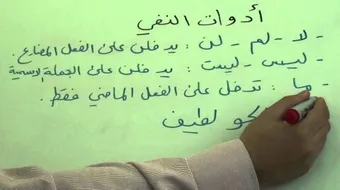 أدوات النفي
- لا - لم - لن : يدخلن على الفعل المضارع.
- ليس - ليست : يدخلن على الجملة الاسمية
- ما : تدخل على الفعل الماضي فقط.
لطيف